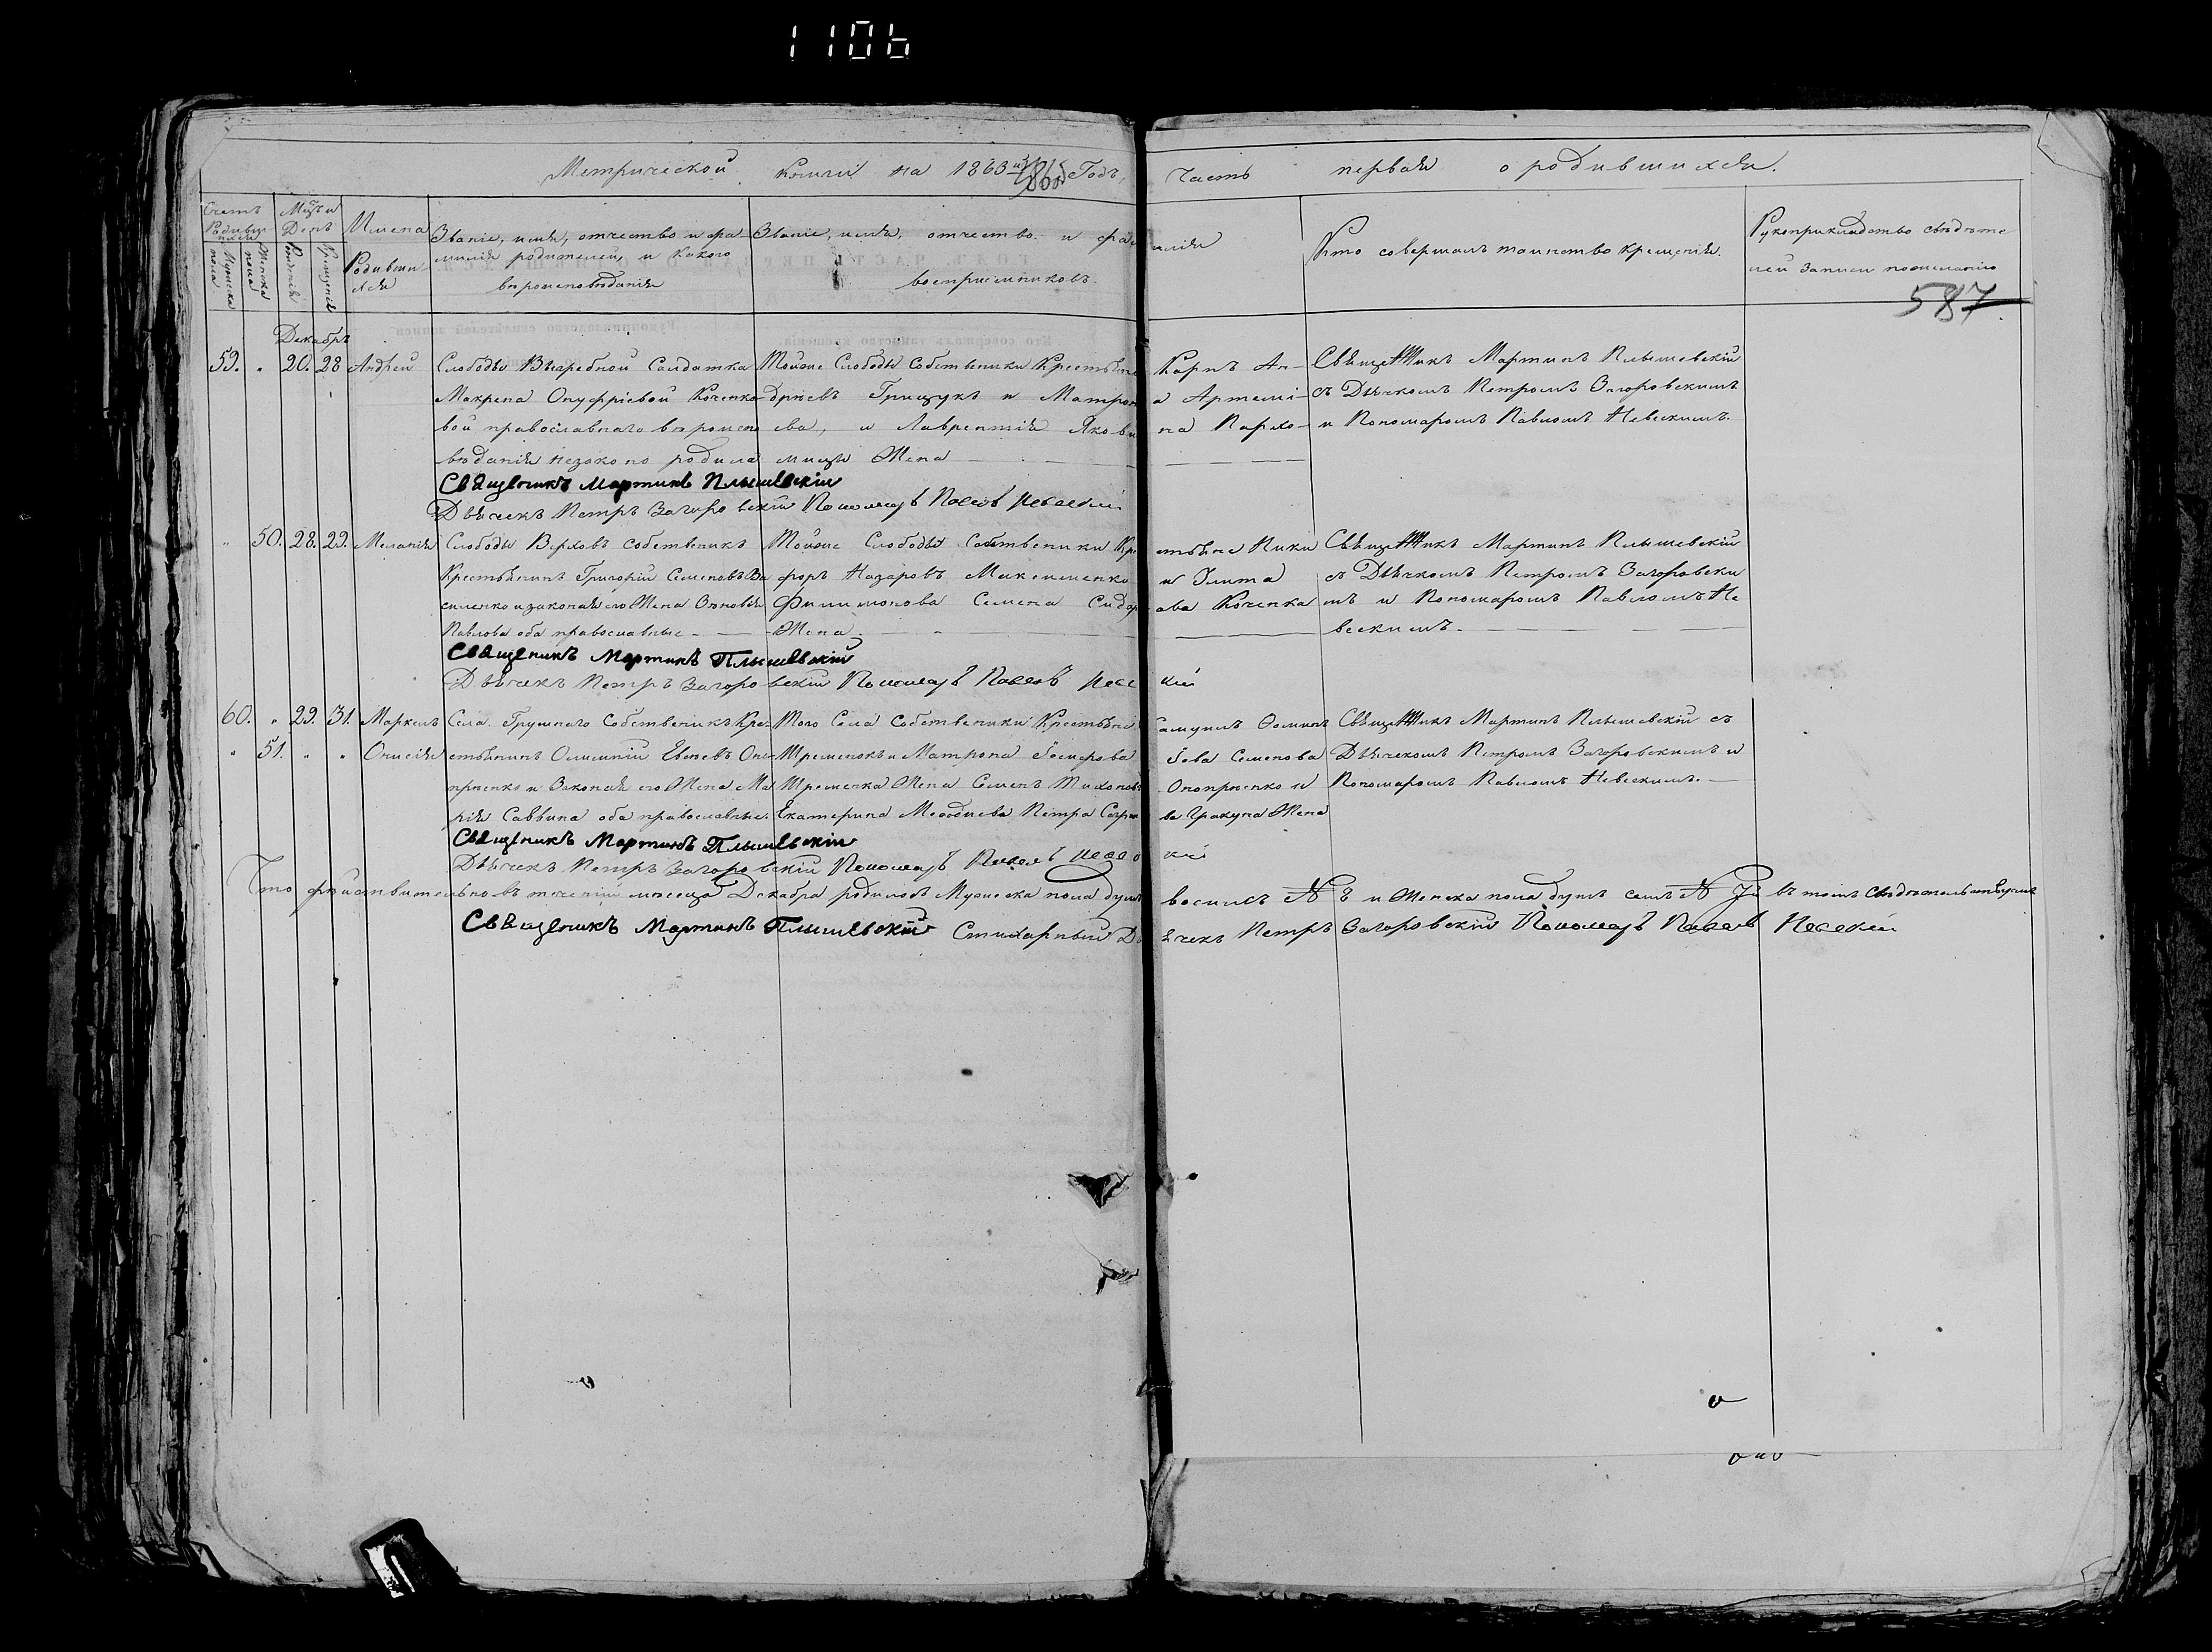 1106
Метрической книги на 1863й Годъ, часть первая о родившихся.
Счетъ Родившихся
Мужеска пола
Женска пола
Мѣц и День
Рожденія
Крещенія
Имена Родившихся
Званіе, имя, отчество и фамилія родителей, и какого вѣроисповѣданія
Званіе, имя, отчество и фамилія воспріемниковъ.
Кто совершалъ таинство крещенія.
Рукоприкладство свѣдѣтелей записи по желанію
587
Декабрь
59. " 20. 28 Андрей
Слободы Выгребной Салдатка
Макрена Онуфріевой Коченко-
вой православнаго вѣроиспо
вѣданія незаконо родила
Тойже Слободы Собственики Крестьяне Карпъ Ан-
дріевъ Грищукъ и Матрона Артеміе-
ва, и Лаврентія Яковина Пархо-
мица Жена
Священникъ Мартинъ Плышевскій
съ Дьячкомъ Петромъ Загоровскимъ
и Пономаромъ Павломъ Невскимъ.
Священикъ Мартинъ Плышевскій
Дьячекъ Петръ Загоровскій Пономарь Павелъ Невскій
" 50. 28. 29. Меланія
Слободы Верховъ собственикъ
Крестьянинъ Григорій Семеновъ Ва
силенко и законая его Жена Зѣновія
Павлова оба православные
Тойже Слободы Собственики Крестьяне Ники
форъ Назаровъ Максименко и Улита
Филимонова Семена Сидорова Коченка
Жена
Священникъ Мартинъ Плышевскій
съ Дьячкомъ Петромъ Загоровски
мъ и Пономаромъ Павломъ Не
вскимъ.
Священикъ Мартинъ Плышевскій
Дьячекъ Петръ Загоровскій Пономарь Павелъ Невскій
60. " 29. 31. Маркелъ
" 51. " " Онисія
Села Грушнаго Собственикъ Кре-
стьянинъ Евсеевъ Оно-
пріенко и Законая его Жена Ма
рія Саввина оба православные.
Того Села Собственики Крестьяне Самуилъ Ѳоминъ
и Матрона Семенова
Жена Семенъ Тихоновъ Онопріенко и
Екатерина Меѳодиева Петра Жена
Священникъ Мартинъ Плышевскій съ
Дьячкомъ Петромъ Загоровскимъ и
Пономаромъ Павломъ Невскимъ.
Священикъ Мартинъ Плышевскій
Дьячекъ Петръ Загоровскій Пономарь Павелъ Невскій
Что дѣйствительно въ теченіи мѣсяца Декабра родилось Мужеска пола душъ восимь № 8 и Женска пола душъ семъ № 7й въ томъ свѣдѣтельствуемъ
Священикъ Мартинъ Плышевскій Стихарный Дьячекъ Петръ Загоровскій Пономарь Павелъ Невскій